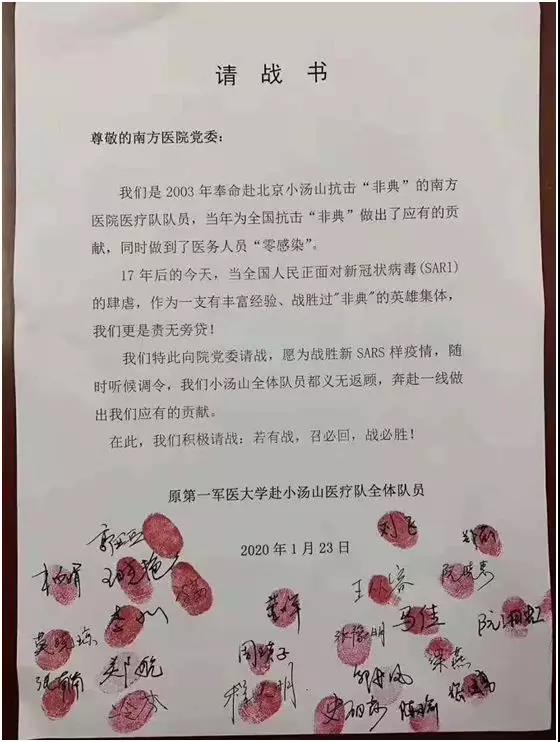 请战书
尊敬的南方医院党委：
我们是 2003 年奉命赴北京小汤山抗击“非典”的南方
医院医疗队队员，当年为全国抗击“非典”做出了应有的贡
献，同时做到了医务人员“零感染”。
17 年后的今天，当全国人民正面对新冠状病毒(SARI)
的肆虐，作为一支有丰富经验、战胜过"非典"的英雄集体，
我们更是责无旁贷！
我们特此向院党委请战，愿为战胜新 SARS 样疫情，随
时听候调令，我们小汤山全体队员都义无返顾，奔赴一线做
出我们应有的贡献。
在此，我们积极请战：若有战，召必回，战必胜！
原第一军医大学赴小汤山医疗队全体队员
2020 年 1 月 23 日
刘飞
马佳
阮湘虹